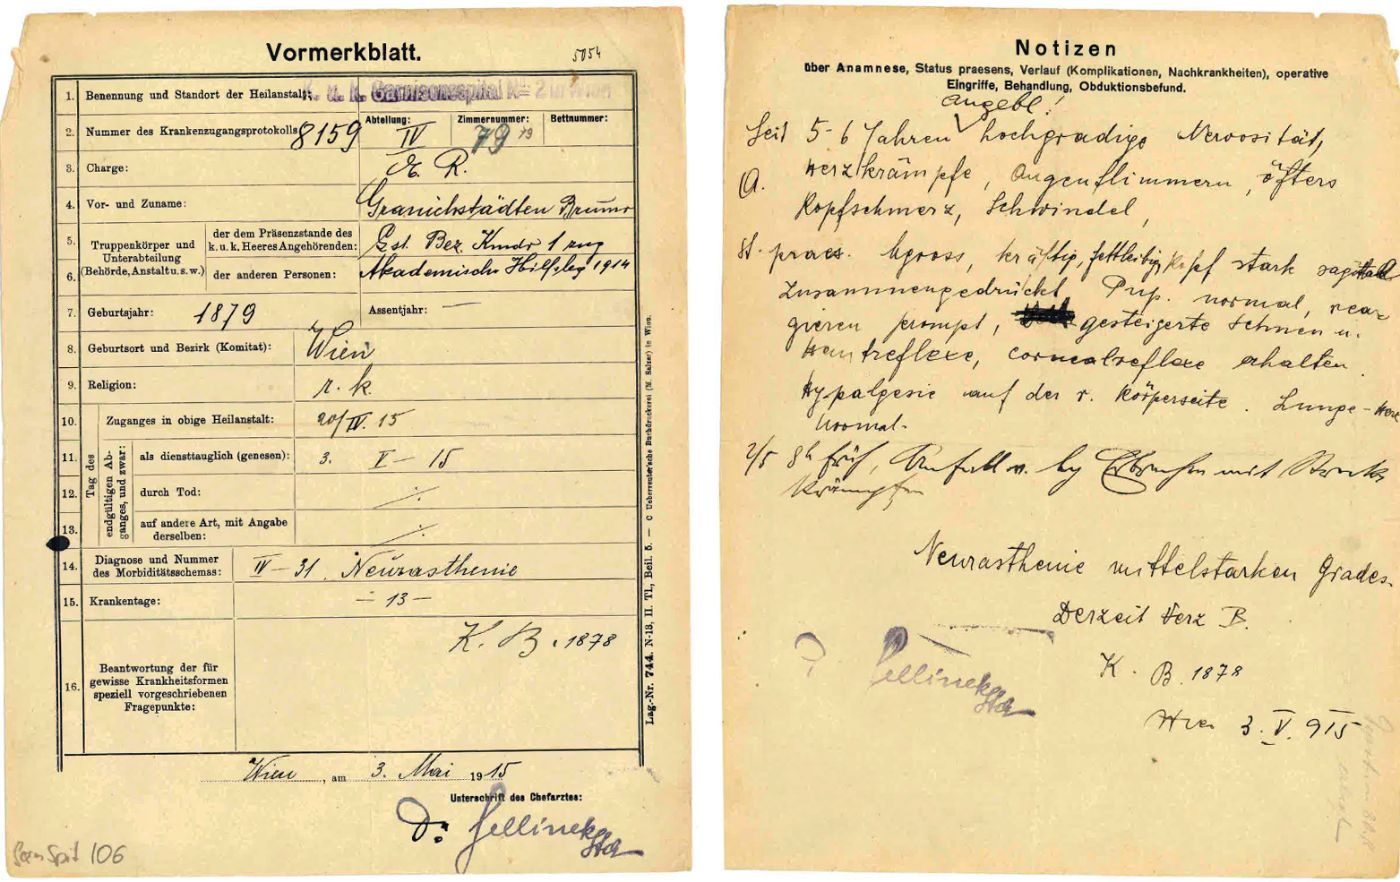 Vormerkblatt.
5054
1. Benennung und Standort der Heilanstalt: K. u. k. Garnisonsspital No 2 in Wien
2. Nummer des Krankenzugangsprotokolls 8159 Abteilung: IV Zimmernummer: 79 Bettnummer:
3. Charge: E. R.
4. Vor- und Zuname: Granichstädten Bruno
5. Truppenkörper und Unterabteilung (Behörde, Anstalt u. s. w.) der dem Präsenzstande des k. u. k. Heeres Angehörenden: Bez. Kmdo 1 zug
6. der anderen Personen: Akademische 1914
7. Geburtsjahr: 1879 Assentjahr: —
8. Geburtsort und Bezirk (Komitat): Wien
9. Religion: r. k.
Tag des
10. Zuganges in obige Heilanstalt: 20/IV. 15
endgültigen Abganges, und zwar:
11. als diensttauglich (genesen): 3. V — 15
12. durch Tod: ./.
13. auf andere Art, mit Angabe derselben: ./.
14. Diagnose und Nummer des Morbiditätsschemas: IV — 31. Neurasthenie
15. Krankentage: — 13 —
16. Beantwortung der für gewisse Krankheitsformen speziell vorgeschriebenen Fragepunkte: K. B. 1878
Wien, am 3. Mai 1915
Unterschrift des Chefarztes:
Dr. Jellinek
106
Lag.-Nr. 744. N-13, II. Tl., Beil. 5. — C Ueberreuter'sche Buchdruckerei (M. Salzer) in Wien.
Notizen
über Anamnese, Status praesens, Verlauf (Komplikationen, Nachkrankheiten), operative
Eingriffe, Behandlung, Obduktionsbefund.
angebl!
Seit 5-6 Jahren hochgradige Nervosität,
A. Herzkrämpfe, Augenflimmern, öfters
Kopfschmerz, Schwindel,
St. praes. gross, kräftig, fettleibig, Kopf stark sagittal
zusammengedrückt Pup. normal, rea-
gieren prompt, gesteigerte Sehnen u.
Hautreflexe, Cornealreflexe erhalten.
Hypalgesie auf der r. Körperseite. Lunge - Herz
normal.
2/5 8h früh, Anfall v. Erbrechen mit
Krämpfen
Neurasthenie mittelstarken Grades.
Derzeit Herz B.
K. B. 1878
Dr. Jellinek
Wien 3. V. 915